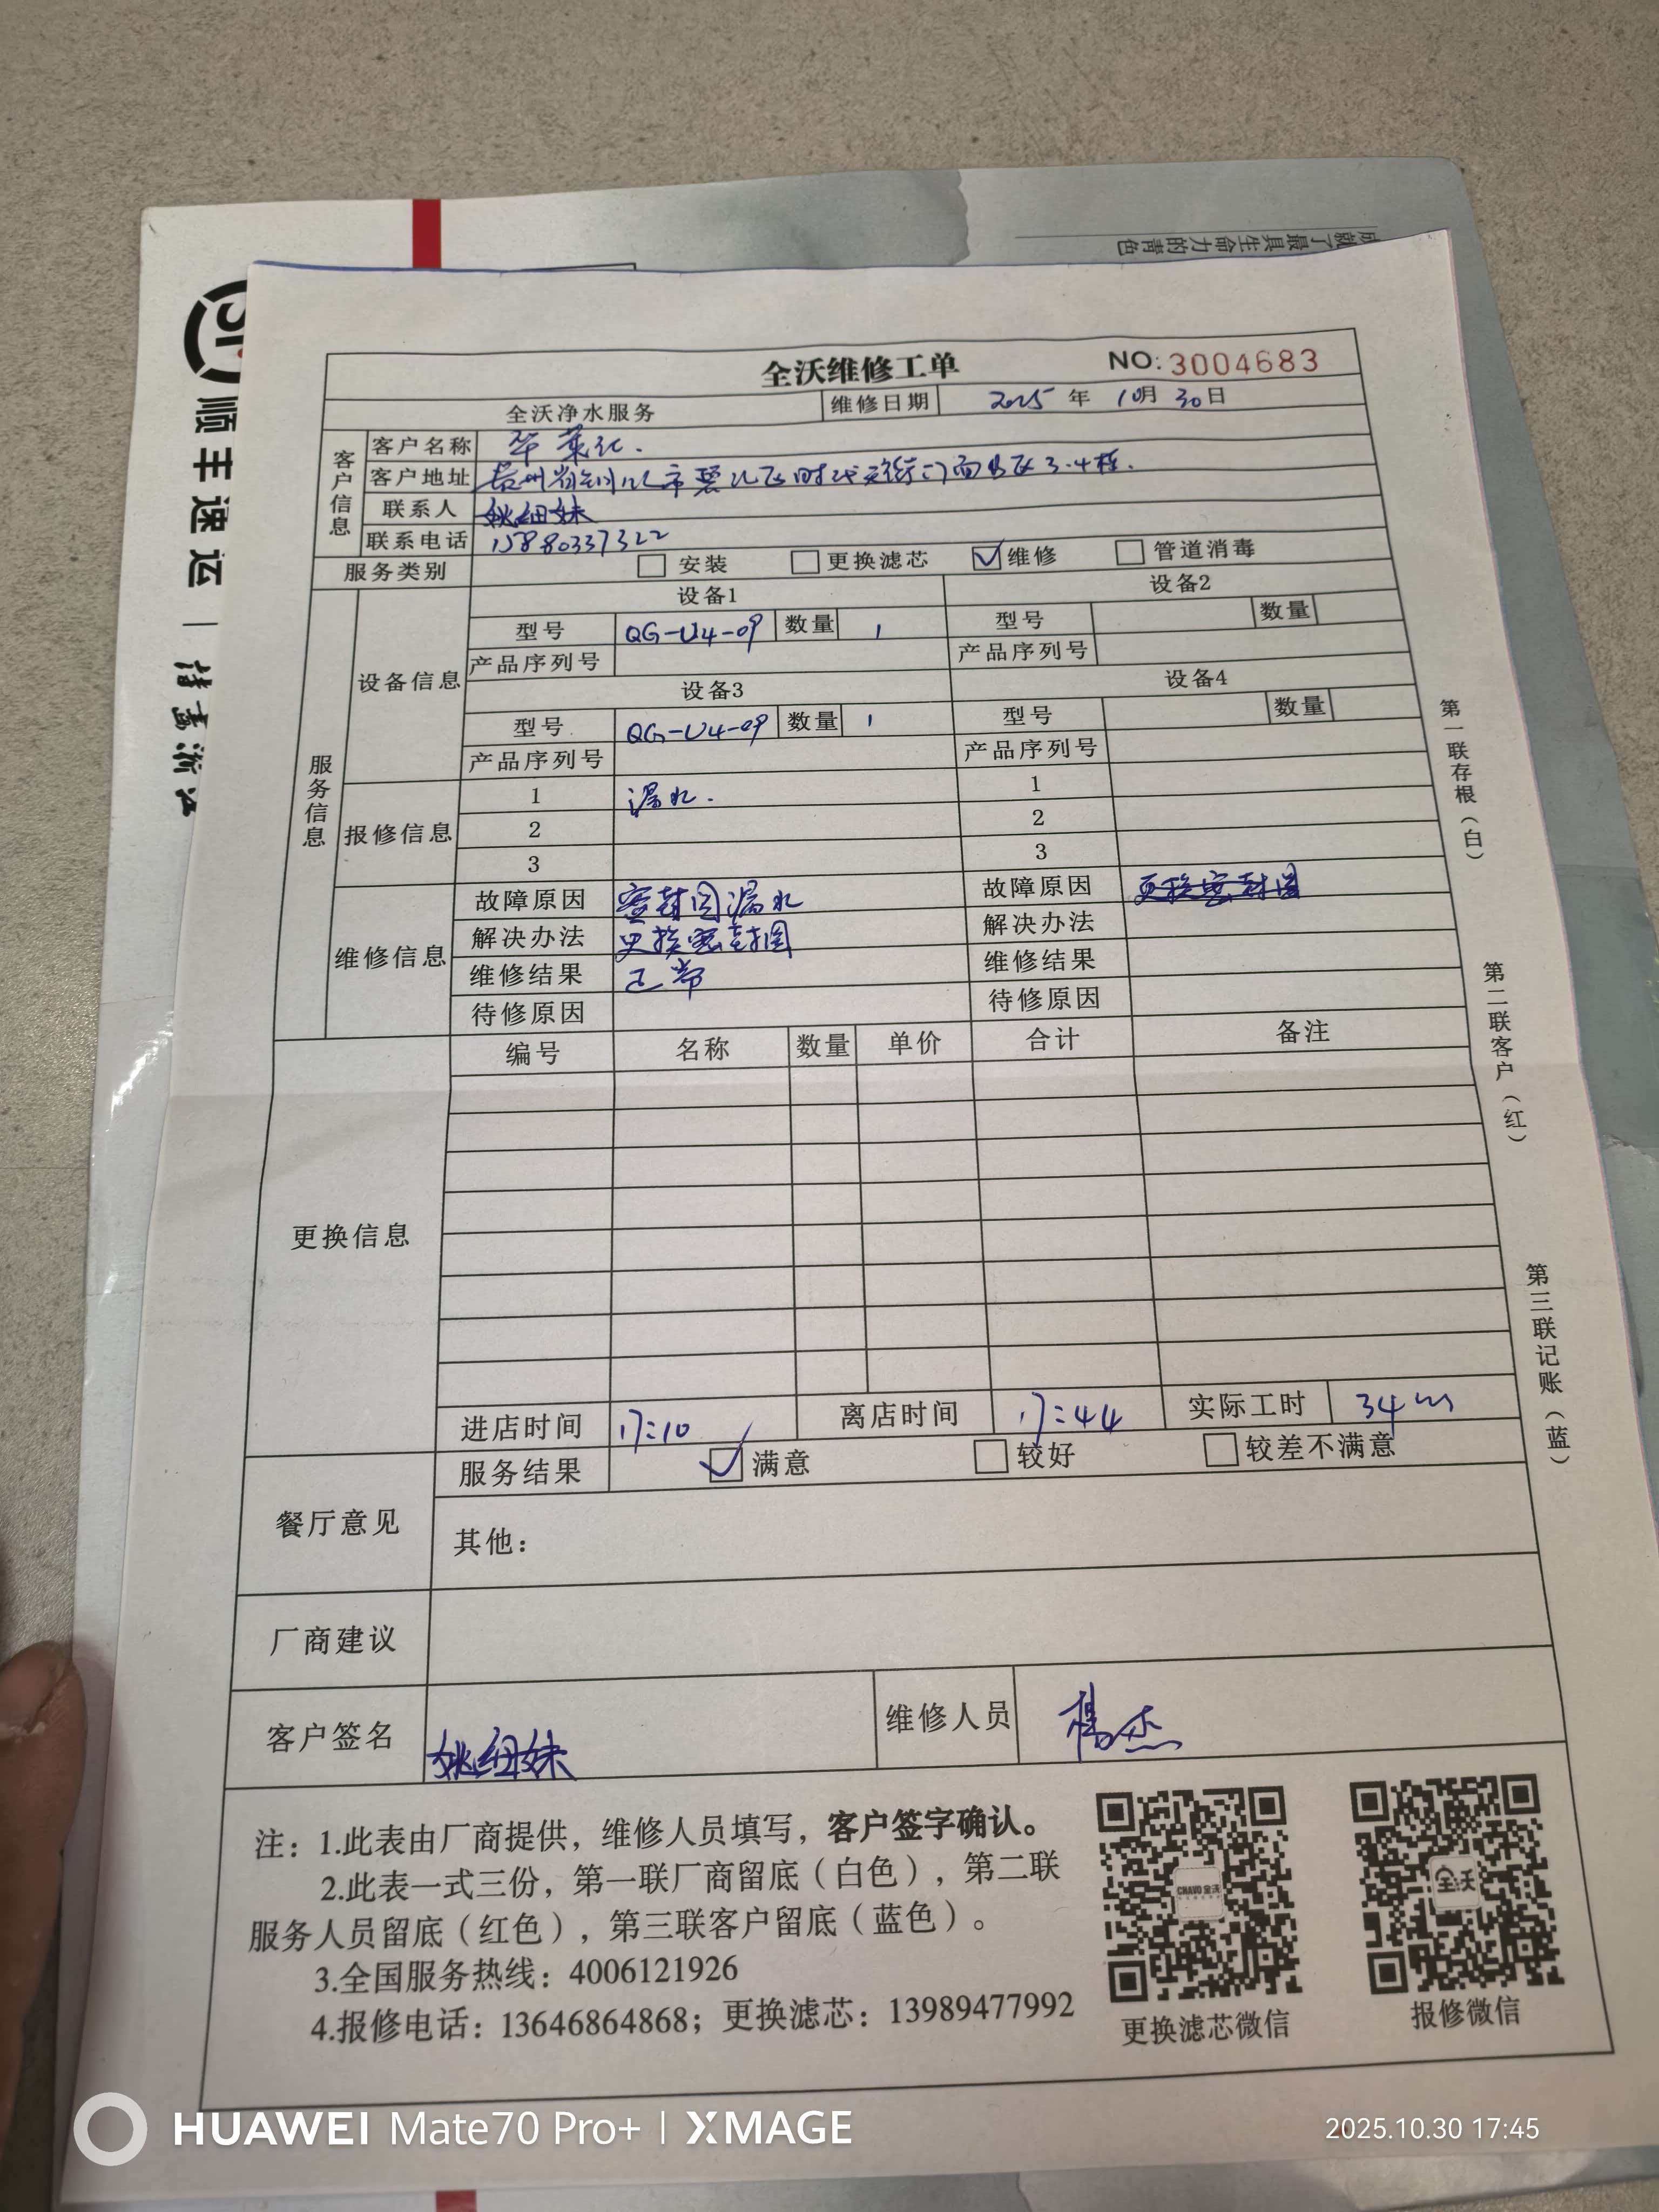 成就了最具生命力的青色
顺丰速运
全沃维修工单 NO:3004683
全沃净水服务 维修日期 2025 年 10月 30日
客户信息
客户名称
客户地址 贵州省铜仁市碧江区时代天街门面B区3.4栋.
联系人 姚细妹
联系电话 15880337322
服务类别 安装 更换滤芯 维修 管道消毒
服务信息
设备信息
设备1 设备2
型号 QG-U4-09 数量 1 型号 数量
产品序列号 产品序列号
设备3 设备4
型号 QG-U4-09 数量 1 型号 数量
产品序列号 产品序列号
报修信息
1 漏水. 1
2 2
3 3
维修信息
故障原因 密封圈漏水 故障原因 更换密封圈
解决办法 更换密封圈 解决办法
维修结果 正常 维修结果
待修原因 待修原因
更换信息
编号 名称 数量 单价 合计 备注
进店时间 17:10 离店时间 17:44 实际工时 34m
餐厅意见
服务结果 满意 较好 较差不满意
其他：
厂商建议
客户签名 姚细妹 维修人员 杨杰
注：1.此表由厂商提供，维修人员填写，客户签字确认。
2.此表一式三份，第一联厂商留底（白色），第二联
服务人员留底（红色），第三联客户留底（蓝色）。
3.全国服务热线：4006121926
4.报修电话：13646864868；更换滤芯：13989477992
CHAVO 全沃
更换滤芯微信
全沃
报修微信
第一联存根（白）
第二联客户（红）
第三联记账（蓝）
HUAWEI Mate70 Pro+ | XMAGE
2025.10.30 17:45